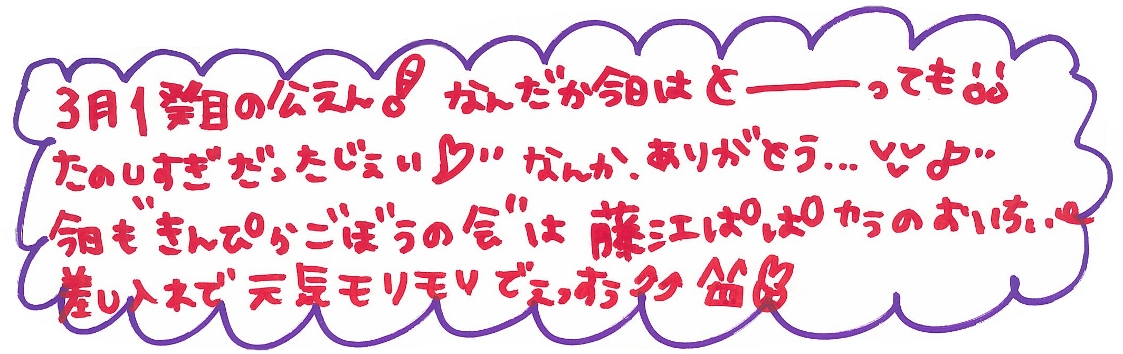 3月1発目の公えん! なんだか今日はと――っても!!
たのしすぎだったじぇい♡" なんか、ありがとう…♡♪"
今日も"きんぴらごぼうの会"は 藤江ぱぱからのおいちぃ
差し入れで 元気モリモリでぇっすぅ♪♪ ^^